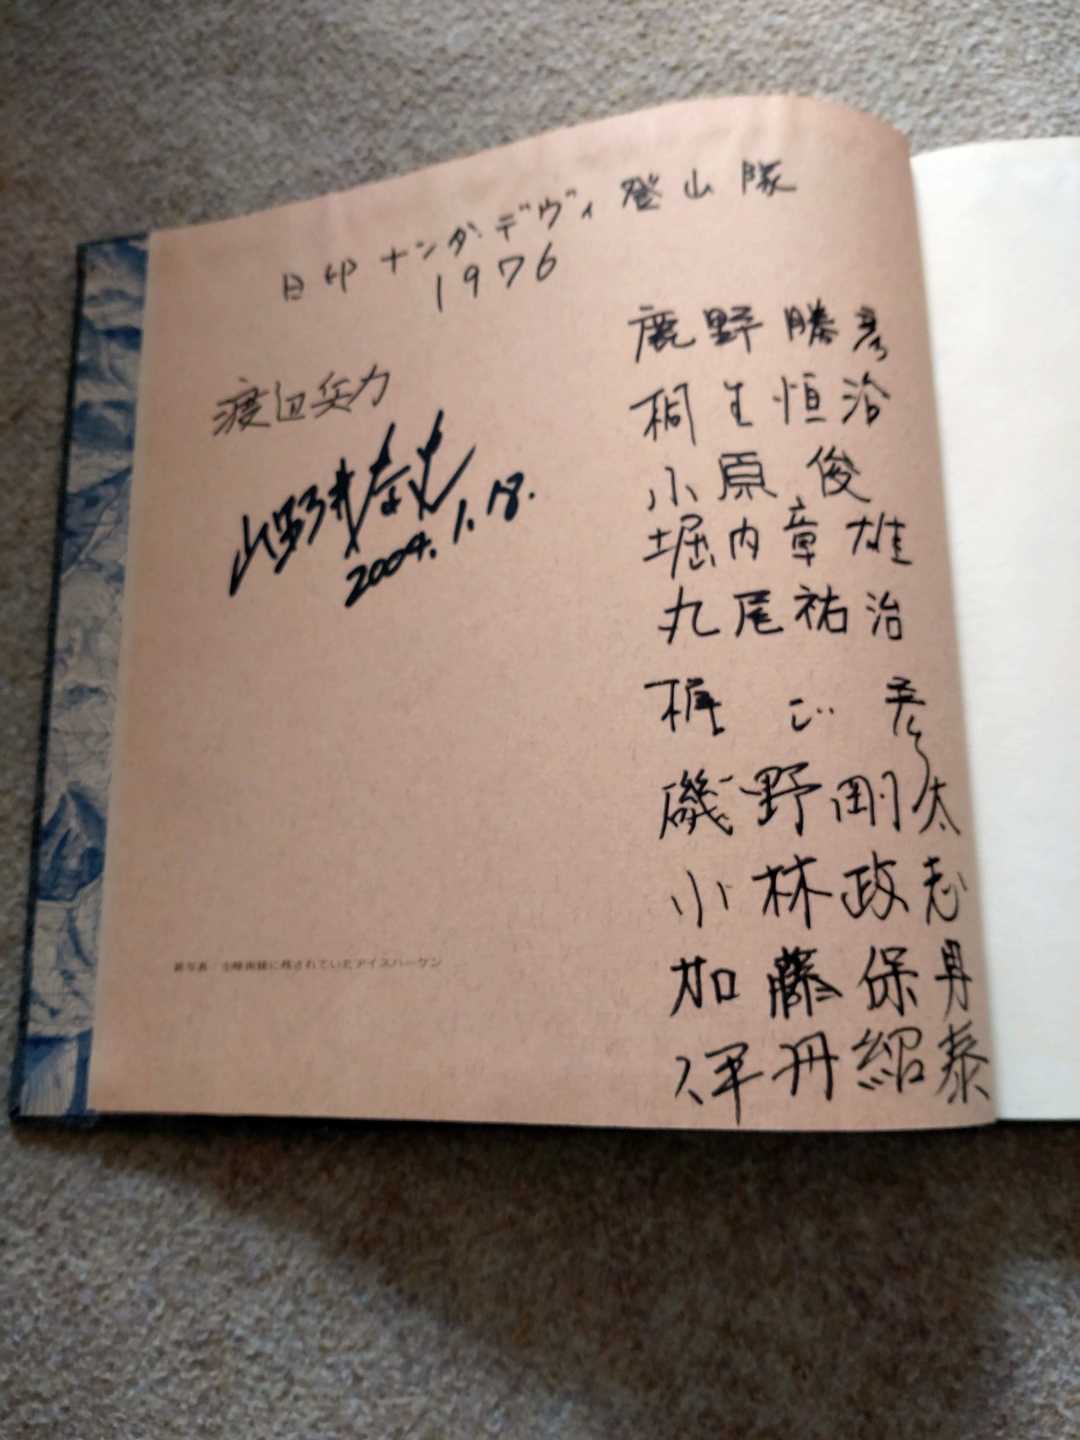 日印ナンダ・デヴィ登山隊
1976
鹿野勝彦
桐生恒治
小原俊
堀内章雄
丸尾祐治
梶正彦
磯野剛太
小林政志
加藤保男
渡辺兵力
山野井泰史
2004.1.18.
紹泰
に残されていたアイスハーケン